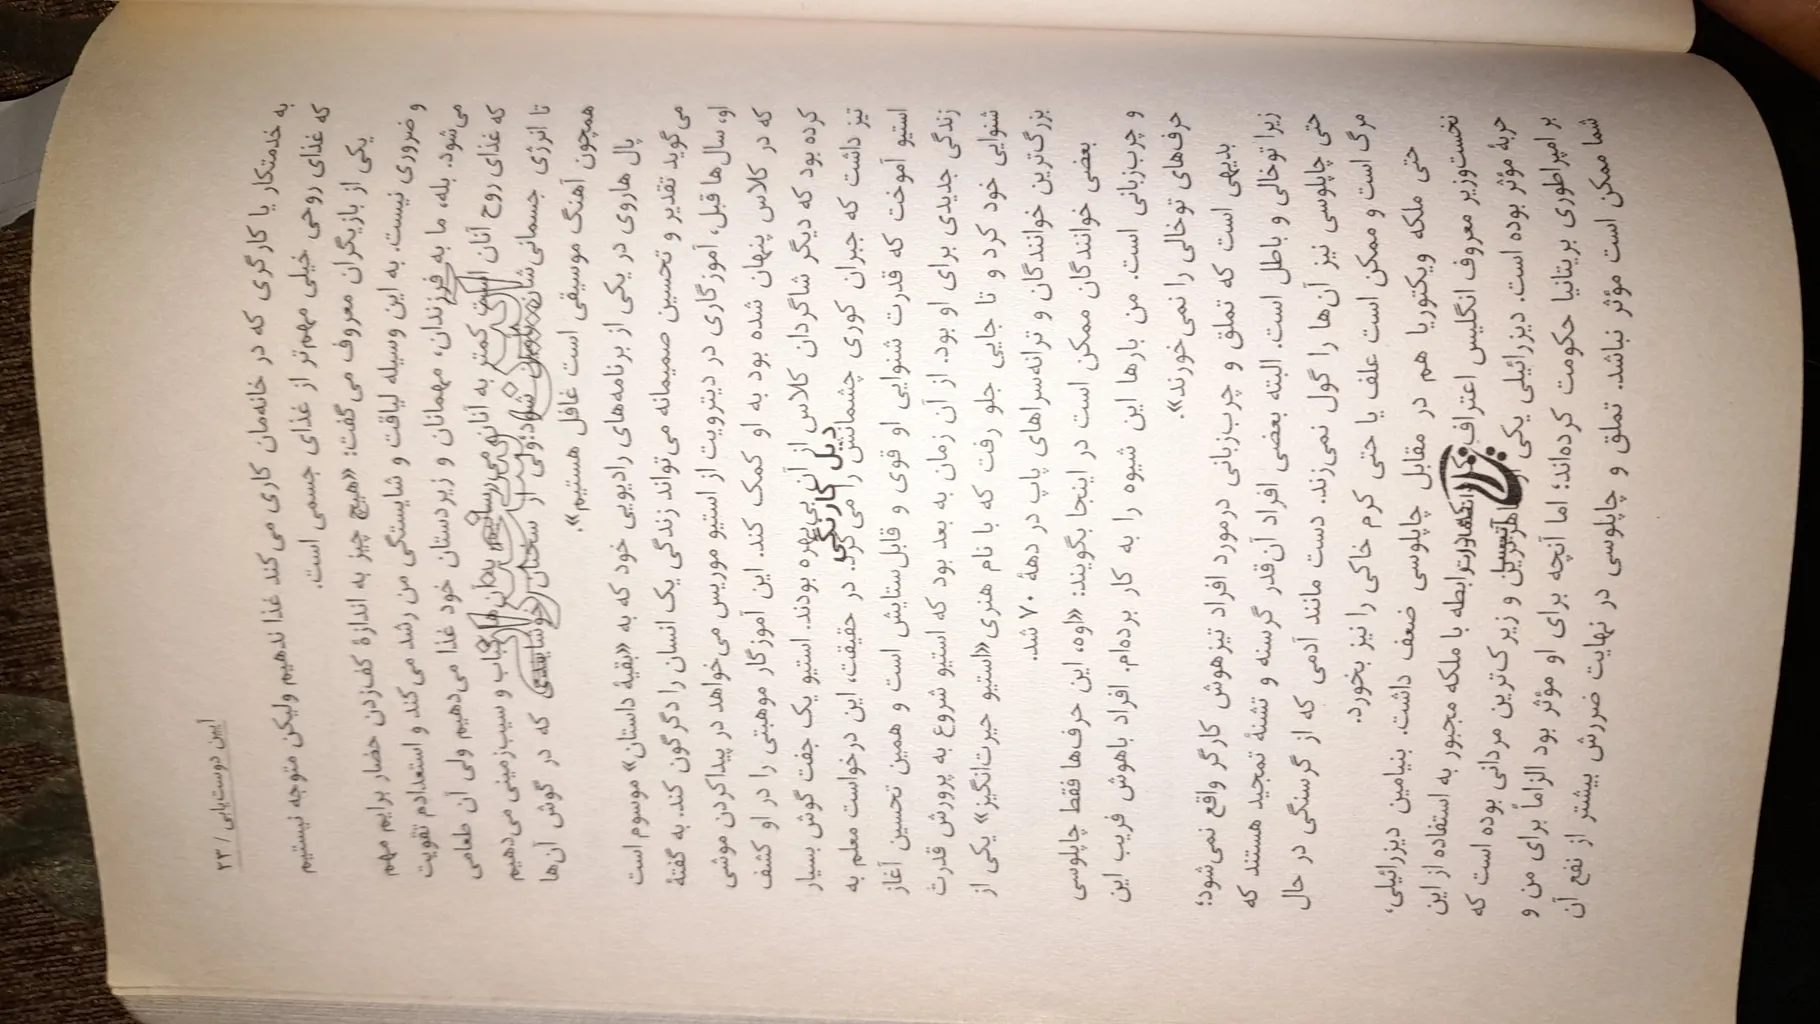 آیین دوست‌یابی / ۲۳
به خدمتکار یا کارگری که در خانه‌مان کاری می‌کند غذا ندهیم ولیکن متوجه نیستیم
که غذای روحی خیلی مهم‌تر از غذای جسمی است.
یکی از بازیگران معروف می‌گفت: «هیچ چیز به اندازهٔ کف‌زدن حضار برایم مهم
و ضروری نیست. به این وسیله لیاقت و شایستگی من رشد می‌کند و استعدادم تقویت
می‌شود. بله، ما به فرزندان، مهمانان و زیردستان خود غذا می‌دهیم ولی آن طعامی
که غذای روح آنان است کمتر به آنان می‌رسانیم. به آن‌ها کباب و سیب‌زمینی می‌دهیم
تا انرژی جسمانی‌شان تأمین شود؛ ولی از سخنان خوشایندی که در گوش آن‌ها
همچون آهنگ موسیقی است غافل هستیم».
پال هاروی در یکی از برنامه‌های رادیویی خود که به «بقیهٔ داستان» موسوم است
می‌گوید تقدیر و تحسین صمیمانه می‌تواند زندگی یک انسان را دگرگون کند. به گفتهٔ
او، سال‌ها قبل، آموزگاری در دیترویت از استیو موریس می‌خواهد در پیداکردن موشی
که در کلاس پنهان شده بود به او کمک کند. این آموزگار موهبتی را در او کشف
کرده بود که دیگر شاگردان کلاس از آن بی‌بهره بودند. استیو یک جفت گوش بسیار
تیز داشت که جبران کوری چشمانش را می‌کرد. در حقیقت، این درخواست معلم به
استیو آموخت که قدرت شنوایی او قوی و قابل‌ستایش است و همین تحسین آغاز
زندگی جدیدی برای او بود. از آن زمان به بعد بود که استیو شروع به پرورش قدرت
شنوایی خود کرد و تا جایی جلو رفت که با نام هنری «استیو حیرت‌انگیز» یکی از
بزرگ‌ترین خوانندگان و ترانه‌سراهای پاپ در دههٔ ۷۰ شد.
بعضی خوانندگان ممکن است در اینجا بگویند: «اوه، این حرف‌ها فقط چاپلوسی
و چرب‌زبانی است. من بارها این شیوه را به کار برده‌ام. افراد باهوش فریب این
حرف‌های توخالی را نمی‌خورند».
بدیهی است که تملق و چرب‌زبانی درمورد افراد تیزهوش کارگر واقع نمی‌شود؛
زیرا توخالی و باطل است. البته بعضی افراد آن‌قدر گرسنه و تشنهٔ تمجید هستند که
حتی چاپلوسی نیز آن‌ها را گول نمی‌زند. دست مانند آدمی که از گرسنگی در حال
مرگ است و ممکن است علف یا حتی کرم خاکی را نیز بخورد.
حتی ملکه ویکتوریا هم در مقابل چاپلوسی ضعف داشت. بنیامین دیزرائیلی،
نخست‌وزیر معروف انگلیس اعتراف کرد در رابطه با ملکه مجبور به استفاده از این
حربهٔ مؤثر بوده است. دیزرائیلی یکی از ماهرترین و زیرک‌ترین مردانی بوده است که
بر امپراطوری بریتانیا حکومت کرده‌اند؛ اما آنچه برای او مؤثر بود الزاماً برای من و
شما ممکن است مؤثر نباشد. تملق و چاپلوسی در نهایت ضررش بیشتر از نفع آن
دیل کارنگی